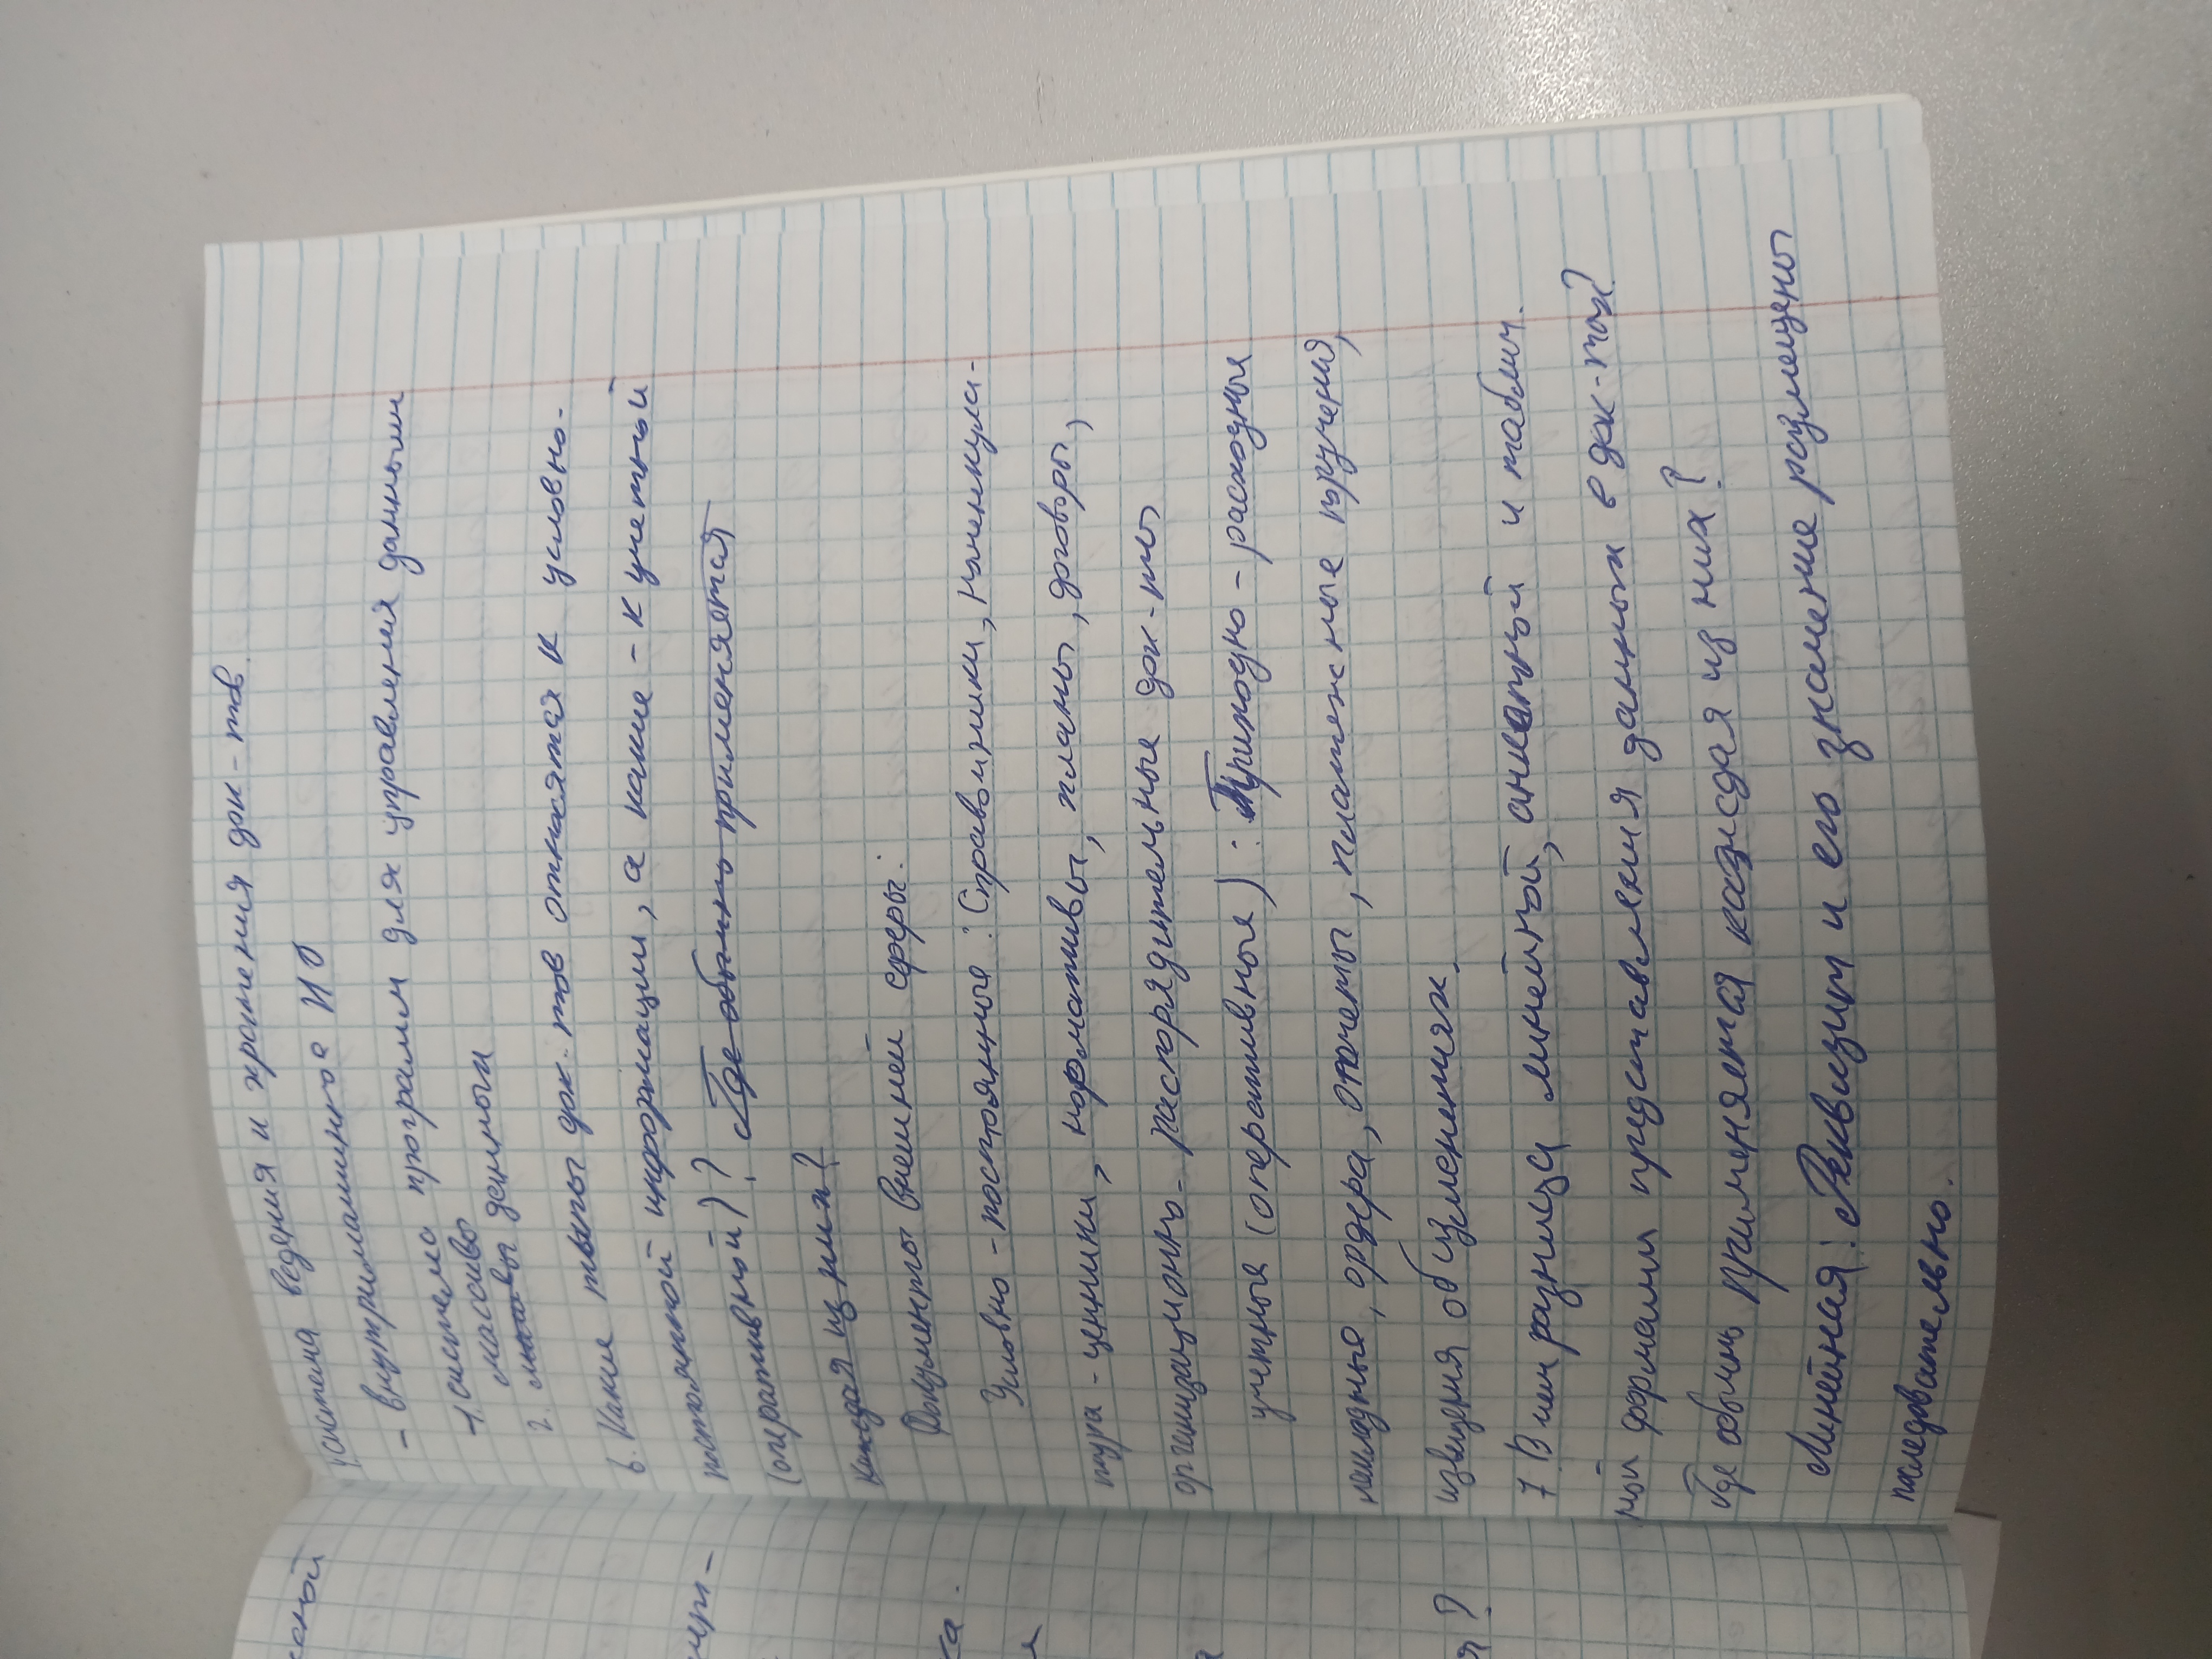 система ведения и хранения док-тов.
- внутримашинное ИО
1. система программ для управления данными
массивы
2. данных
6. Какие типы док-тов относятся к условно-
постоянной информации, а какие - к учетной
(оперативной)? Где обычно применяется
каждая из них?
Документы внешней сферы:
Условно-постоянные: Справочники, номенкула-
тура-ценники, нормативы, планы, договоры,
организационно-распорядительные док-ты
учетные (оперативные): Приходно-расходные
накладные, ордера, отчеты, платежные поручения,
извещения об изменениях.
7. В чем разница линейной, анкетной и таблич.
ной формами представления данных в док-тах?
Где обычно применяется каждая из них?
Линейная: Реквизит и его значение размещены
последовательно.
ка.
я?